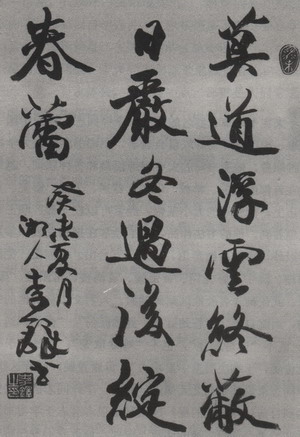 莫道浮雲終蔽
日嚴冬過後綻
春蕾
癸未夏月
湖人李